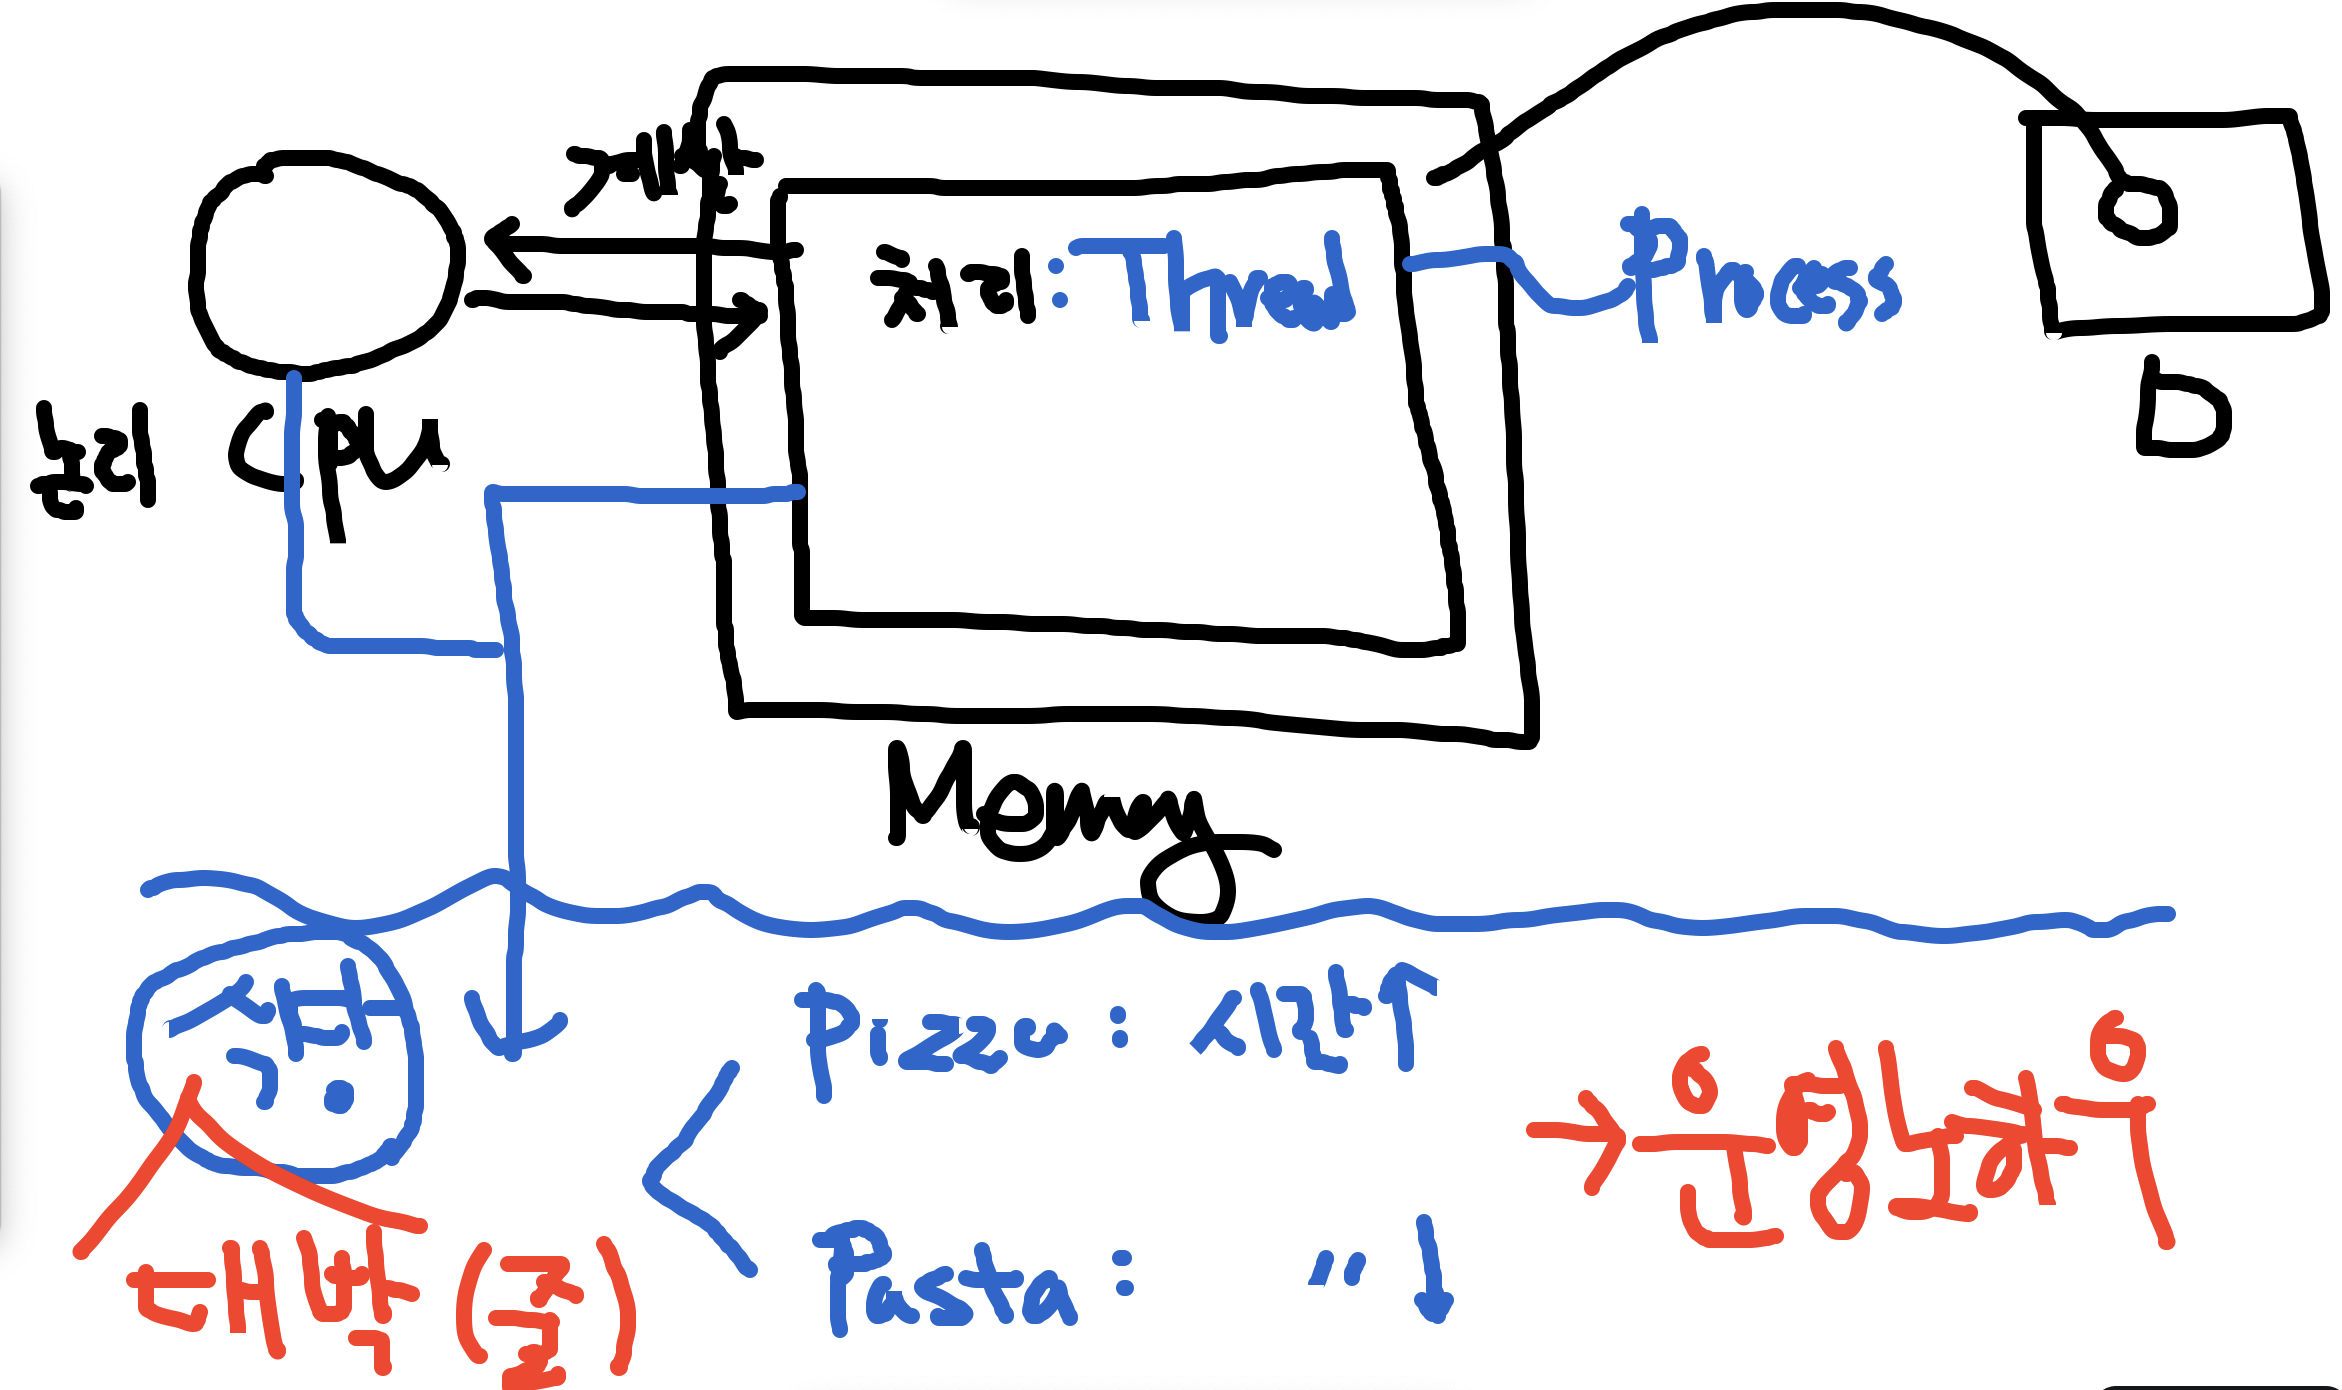 계산
처리: Thread
Process
논리
CPU
D
Memory
식당
Pizza : 시간↑
Pasta : 〃 ↓
대박 (줄)